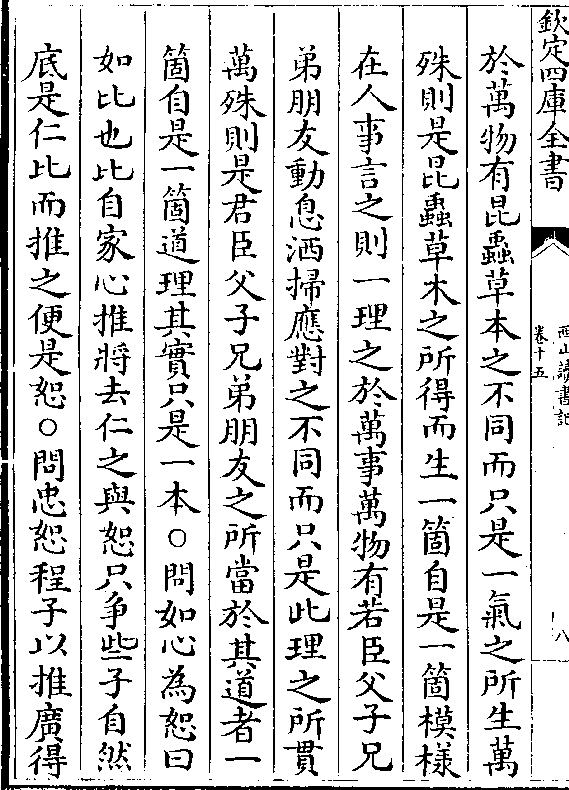 欽定四庫全書
西山讀書記
卷十五
八
於萬物有昆蟲草本之不同而只是一氣之所生萬
殊則是昆蟲草木之所得而生一箇自是一箇模樣
在人事言之則一理之於萬事萬物有若臣父子兄
弟朋友動息洒掃應對之不同而只是此理之所貫
萬殊則是君臣父子兄弟朋友之所當於其道者一
箇自是一箇道理其實只是一本○問如心為恕曰
如比也比自家心推將去仁之與恕只争些子自然
底是仁比而推之便是恕○問忠恕程子以推廣得